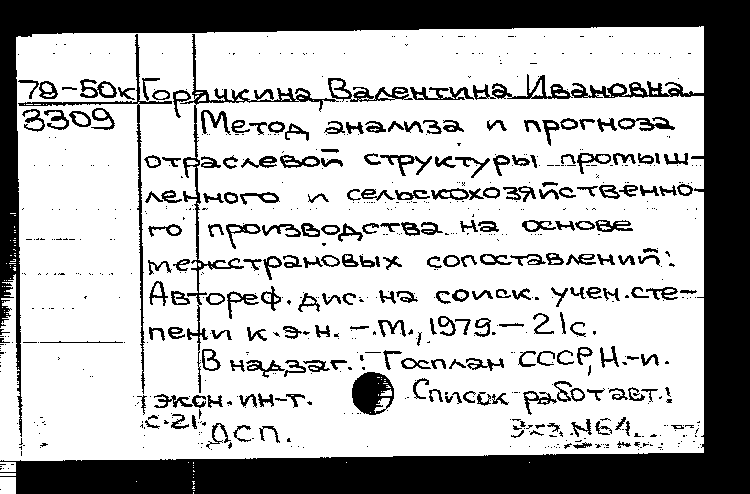 79-50к Горячкина, Валентина Ивановна.
3309 Метод анализа и прогноза
отраслевой структуры промыш-
ленного и сельскохозяйственно-
го производства на основе
межстрановых сопоставлений:
Автореф. дис. на соиск. учен. сте-
пени к.э.н. – М., 1979. – 21с.
В надзаг.: Госплан СССР, Н.-и.
экон. ин-т. Список работ авт.:
с. 21. ДСП. Экз. N64.